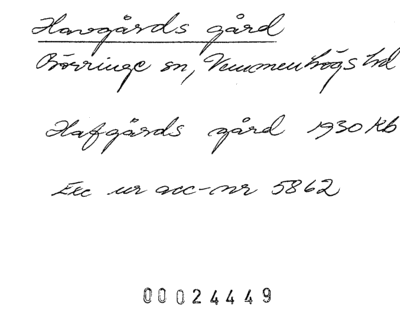 Havgårds gård
Börringe sn, Vemmenhögs hd
Hafgårds gård 1930 Kb
Exc ur acc-nr 5862
00024449